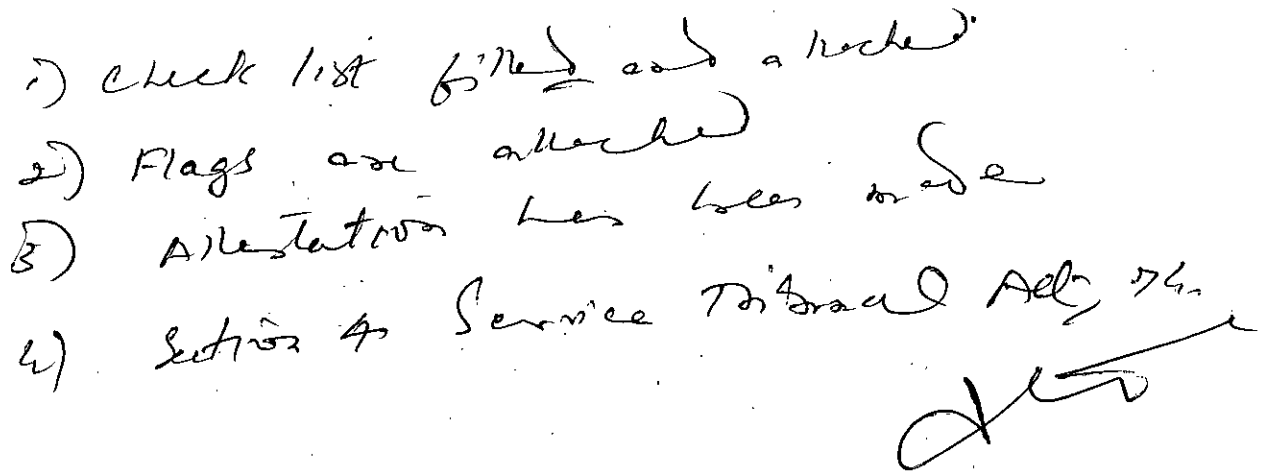 1) Check list filled and attached.
2) Flags are attached
3) Attestation has been made
4) Section 4 Service Tribunal Act, 74.